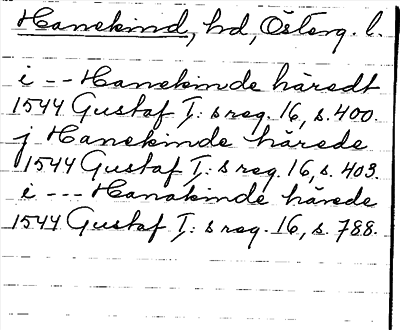 Hanekind, hd, Österg. l.
i -- Hanekinde häredt
1544 Gustaf I:s reg. 16, s. 400.
j Hanekinde härede
1544 Gustaf I:s reg. 16, s. 403.
i --- Hanakinde härede
1544 Gustaf I:s reg. 16, s. 788.